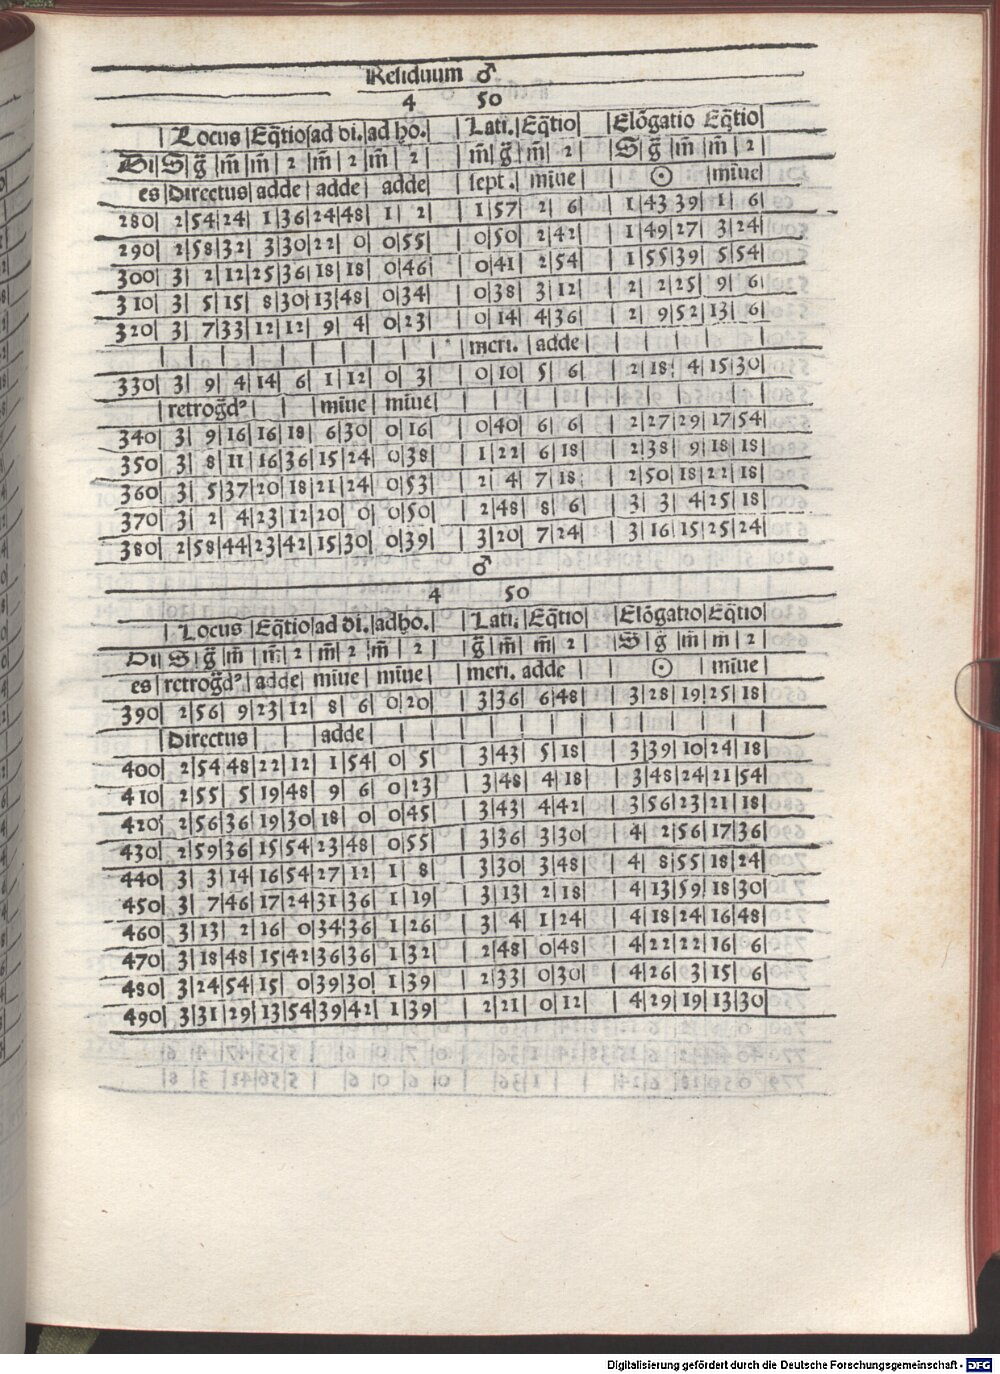 Residuum ♂
4 50
| Locus |Eq̃tio|ad di.|ad ho.| | Lati.|Eq̃tio| | Elõgatio Eq̃tio |
Di|S|g̃|m̃|m̃| 2 |m̃| 2 |m̃| 2 | | m̃|g̃|m̃| 2 | | S| g̃ |m̃ |m̃ | 2 |
es |Directus| adde| adde | adde| | sept.| miũe | | ☉ | miũe|
280| 2|54|24| 1|36|24|48| 1| 2| | 1|57| 2| 6| | 1|43 39| 1| 6|
290| 2|58|32| 3|30|22| 0| 0|55| | 0|50| 2|42| | 1|49|27| 3|24|
300| 3| 2|12|25|36|18|18| 0|46| | 0|41| 2|54| | 1|55|39| 5|54|
310| 3| 5|15| 8|30|13|48| 0|34| | 0|38| 3|12| | 2| 2|25| 9| 6|
320| 3| 7|33|12|12| 9| 4| 0|23| | 0|14| 4|36| | 2| 9|52|13| 6|
| meri. | adde |
330| 3| 9| 4|14| 6| 1|12| 0| 3| | 0|10| 5| 6| | 2|18| 4|15|30|
| retrog̃dꝰ | | | miũe | miũe |
340| 3| 9|16|16|18| 6|30| 0|16| | 0|40| 6| 6| | 2|27|29|17|54|
350| 3| 8|11|16|36|15|24| 0|38| | 1|22| 6|18| | 2|38| 9|18|18|
360| 3| 5|37|20|18|21|24| 0|53| | 2| 4| 7|18| | 2|50|18|22|18|
370| 3| 2| 4|23|12|20| 0| 0|50| | 2|48| 8| 6| | 3| 3| 4|25|18|
380| 2|58|44|23|42|15|30| 0|39| | 3|20| 7|24| | 3|16|15|25|24|
♂
4 50
| Locus |Eq̃tio|ad di.|ad ho.| | Lati.|Eq̃tio| | Elõgatio|Eq̃tio|
Di| S| g̃|m̃ |m̃| 2 |m̃| 2 |m̃| 2 | | g̃|m̃|m̃| 2 | | S| g̃ | m̃| m | 2 |
es |retrog̃dꝰ |adde| miũe | miũe | | meri. adde | | ☉ | miũe |
390| 2|56| 9|23|12| 8| 6| 0|20| | 3|36| 6|48| | 3|28|19|25|18|
| Directus | | | adde |
400| 2|54|48|22|12| 1|54| 0| 5| | 3|43| 5|18| | 3|39|10|24|18|
410| 2|55| 5|19|48| 9| 6| 0|23| | 3|48| 4|18| | 3|48|24|21|54|
420| 2|56|36|19|30|18| 0| 0|45| | 3|43| 4|42| | 3|56|23|21|18|
430| 2|59|36|15|54|23|48| 0|55| | 3|36| 3|30| | 4| 2|56|17|36|
440| 3| 3|14|16|54|27|12| 1| 8| | 3|30| 3|48| | 4| 8|55|18|24|
450| 3| 7|46|17|24|31|36| 1|19| | 3|13| 2|18| | 4|13|59|18|30|
460| 3|13| 2|16| 0|34|36| 1|26| | 3| 4| 1|24| | 4|18|24|16|48|
470| 3|18|48|15|42|36|36| 1|32| | 2|48| 0|48| | 4|22|22|16| 6|
480| 3|24|54|15| 0|39|30| 1|39| | 2|33| 0|30| | 4|26| 3|15| 6|
490| 3|31|29|13|54|39|42| 1|39| | 2|21| 0|12| | 4|29|19|13|30|
Digitalisierung gefördert durch die Deutsche Forschungsgemeinschaft - DFG